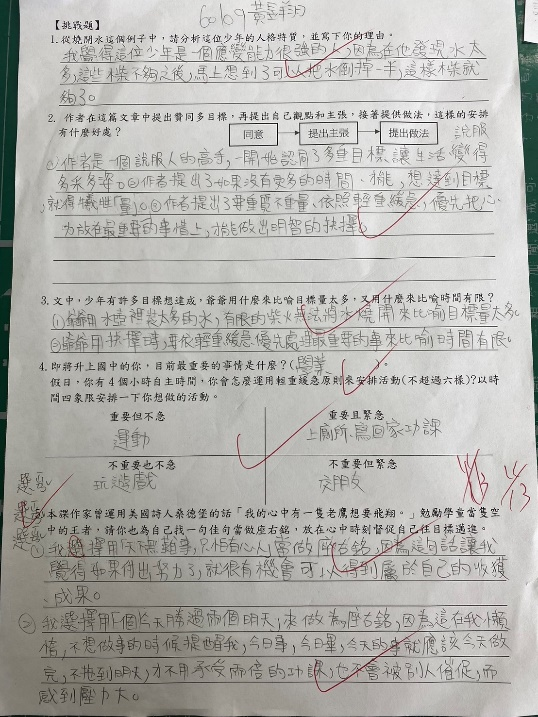 60109 黃
【挑戰題】
1.從燒開水這個例子中，請分析這位少年的人格特質，並寫下你的理由。
我覺得這位少年是一個應變能力很強的人，因為在他發現水太
多，這些木柴不夠之後，馬上想到了可以把水倒掉一半，這樣木柴就
夠了。
2. 作者在這篇文章中提出贊同多目標，再提出自己觀點和主張，接著提供做法，這樣的安排
有什麼好處？ 同意 提出主張 提出做法 說服
①作者是一個說服人的高手，一開始認同了多重目標讓生活變得
多采多姿。②作者提出了如果沒有更多的時間、才能，想達到目標
，就得犧牲「量」。③作者提出了要重質不重量、依照輕重緩急，優先把心
力放在最重要的事情上，才能做出明智的抉擇。
3.文中，少年有許多目標想達成，爺爺用什麼來比喻目標量太多，又用什麼來比喻時間有限？
(1)爺爺用水壺裡裝太多的水，有限的柴火無法將水燒開來比喻目標量太多。
(2)爺爺用抉擇時，要依輕重緩急優先處理最重要的事來比喻時間有限。
4.即將升上國中的你，目前最重要的事情是什麼？(學業)
假日，你有 4 個小時自主時間，你會怎麼運用輕重緩急原則來安排活動(不超過六樣)？以時
間四象限安排一下你想做的活動。
重要但不急 重要且緊急
運動 上廁所、寫回家功課
不重要也不急 不重要但緊急
玩遊戲 交朋友
選 選 選
4/13 4/13
本課作家曾運用美國詩人桑德堡的話「我的心中有一隻老鷹想要飛翔。」勉勵學童當隻空
中的王者，請你也為自己找一句佳句當做座右銘，放在心中時刻督促自己往目標邁進。
① 我選擇用「天下無難事，只怕有心人」當做座右銘，因為這句話讓我
覺得如果付出努力了，就很有機會可以得到屬於自己的收獲
、成果。
② 我選擇用「一個今天勝過兩個明天」來做為座右銘，因為這在我懶
惰，不想做事的時候提醒我，今日事，今日畢，今天的事就應該今天做
完，不拖到明天，才不用承受兩倍的功課，也不會被別人催促，而
感到壓力大。